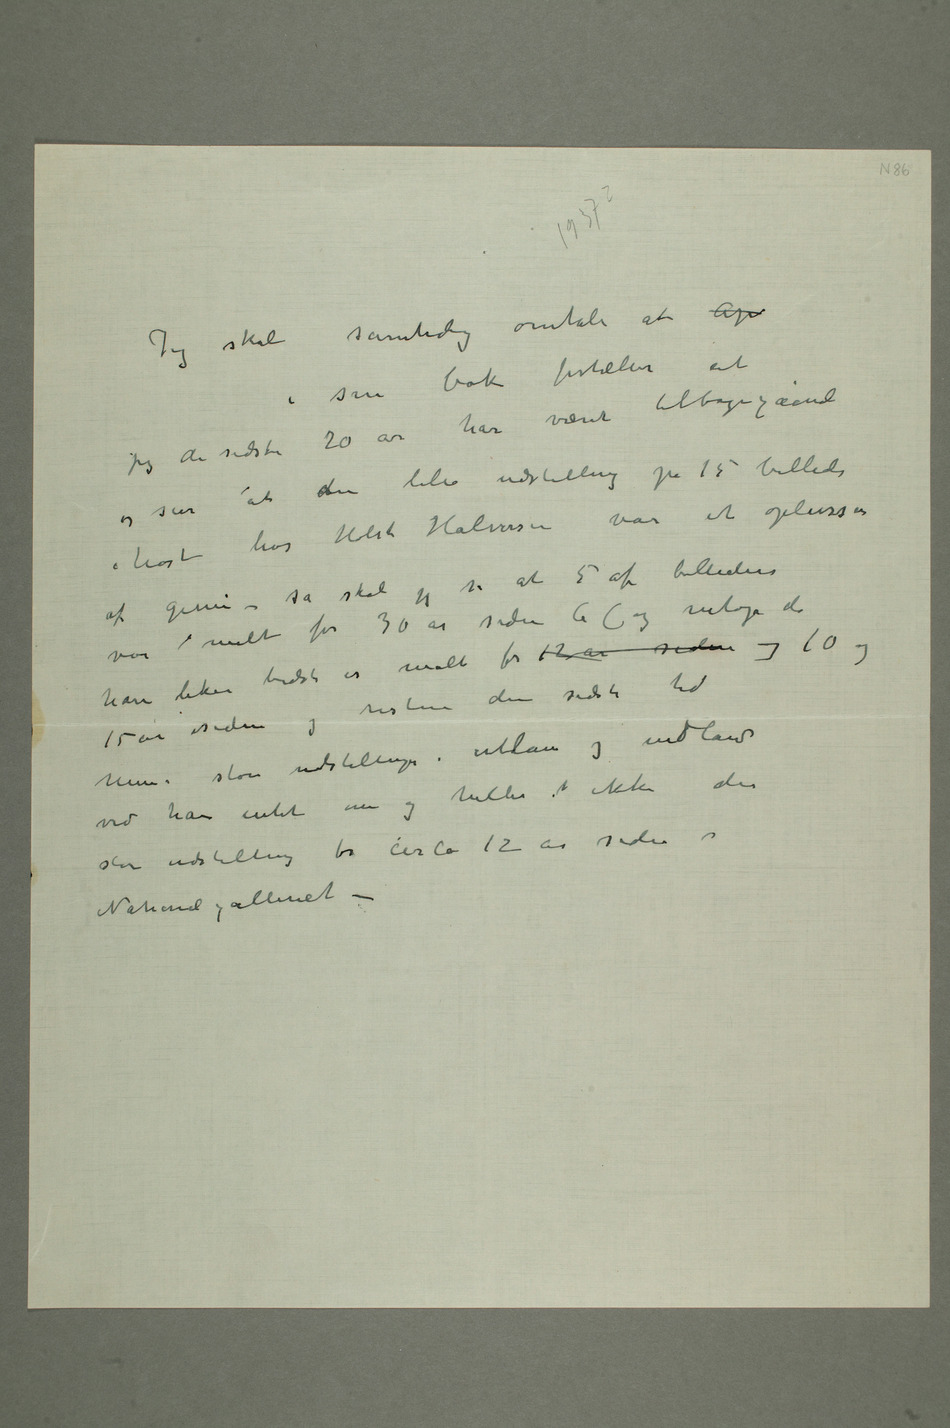 N 86
1937?
Jeg skal samtidig omtale at Ap
i sin bok fortæller at
jeg de sidste 20 år har været tilbagegaaend
og sier at den lille udstilling på 15 billeder
i høst hos Holst Halvorsen var et opblusse
af geni – så skal jeg si at 5 af billederne
var malt for 30 år siden 6 ( og netop de
han liker bedst er malt for 12 år siden og 10 og
15 år siden og resten den sidste tid
Mine store udstillinger i utlan og indland
ved han intet om og heller ikke den
store udstilling for circa 12 år siden i
Nationalgalleriet —